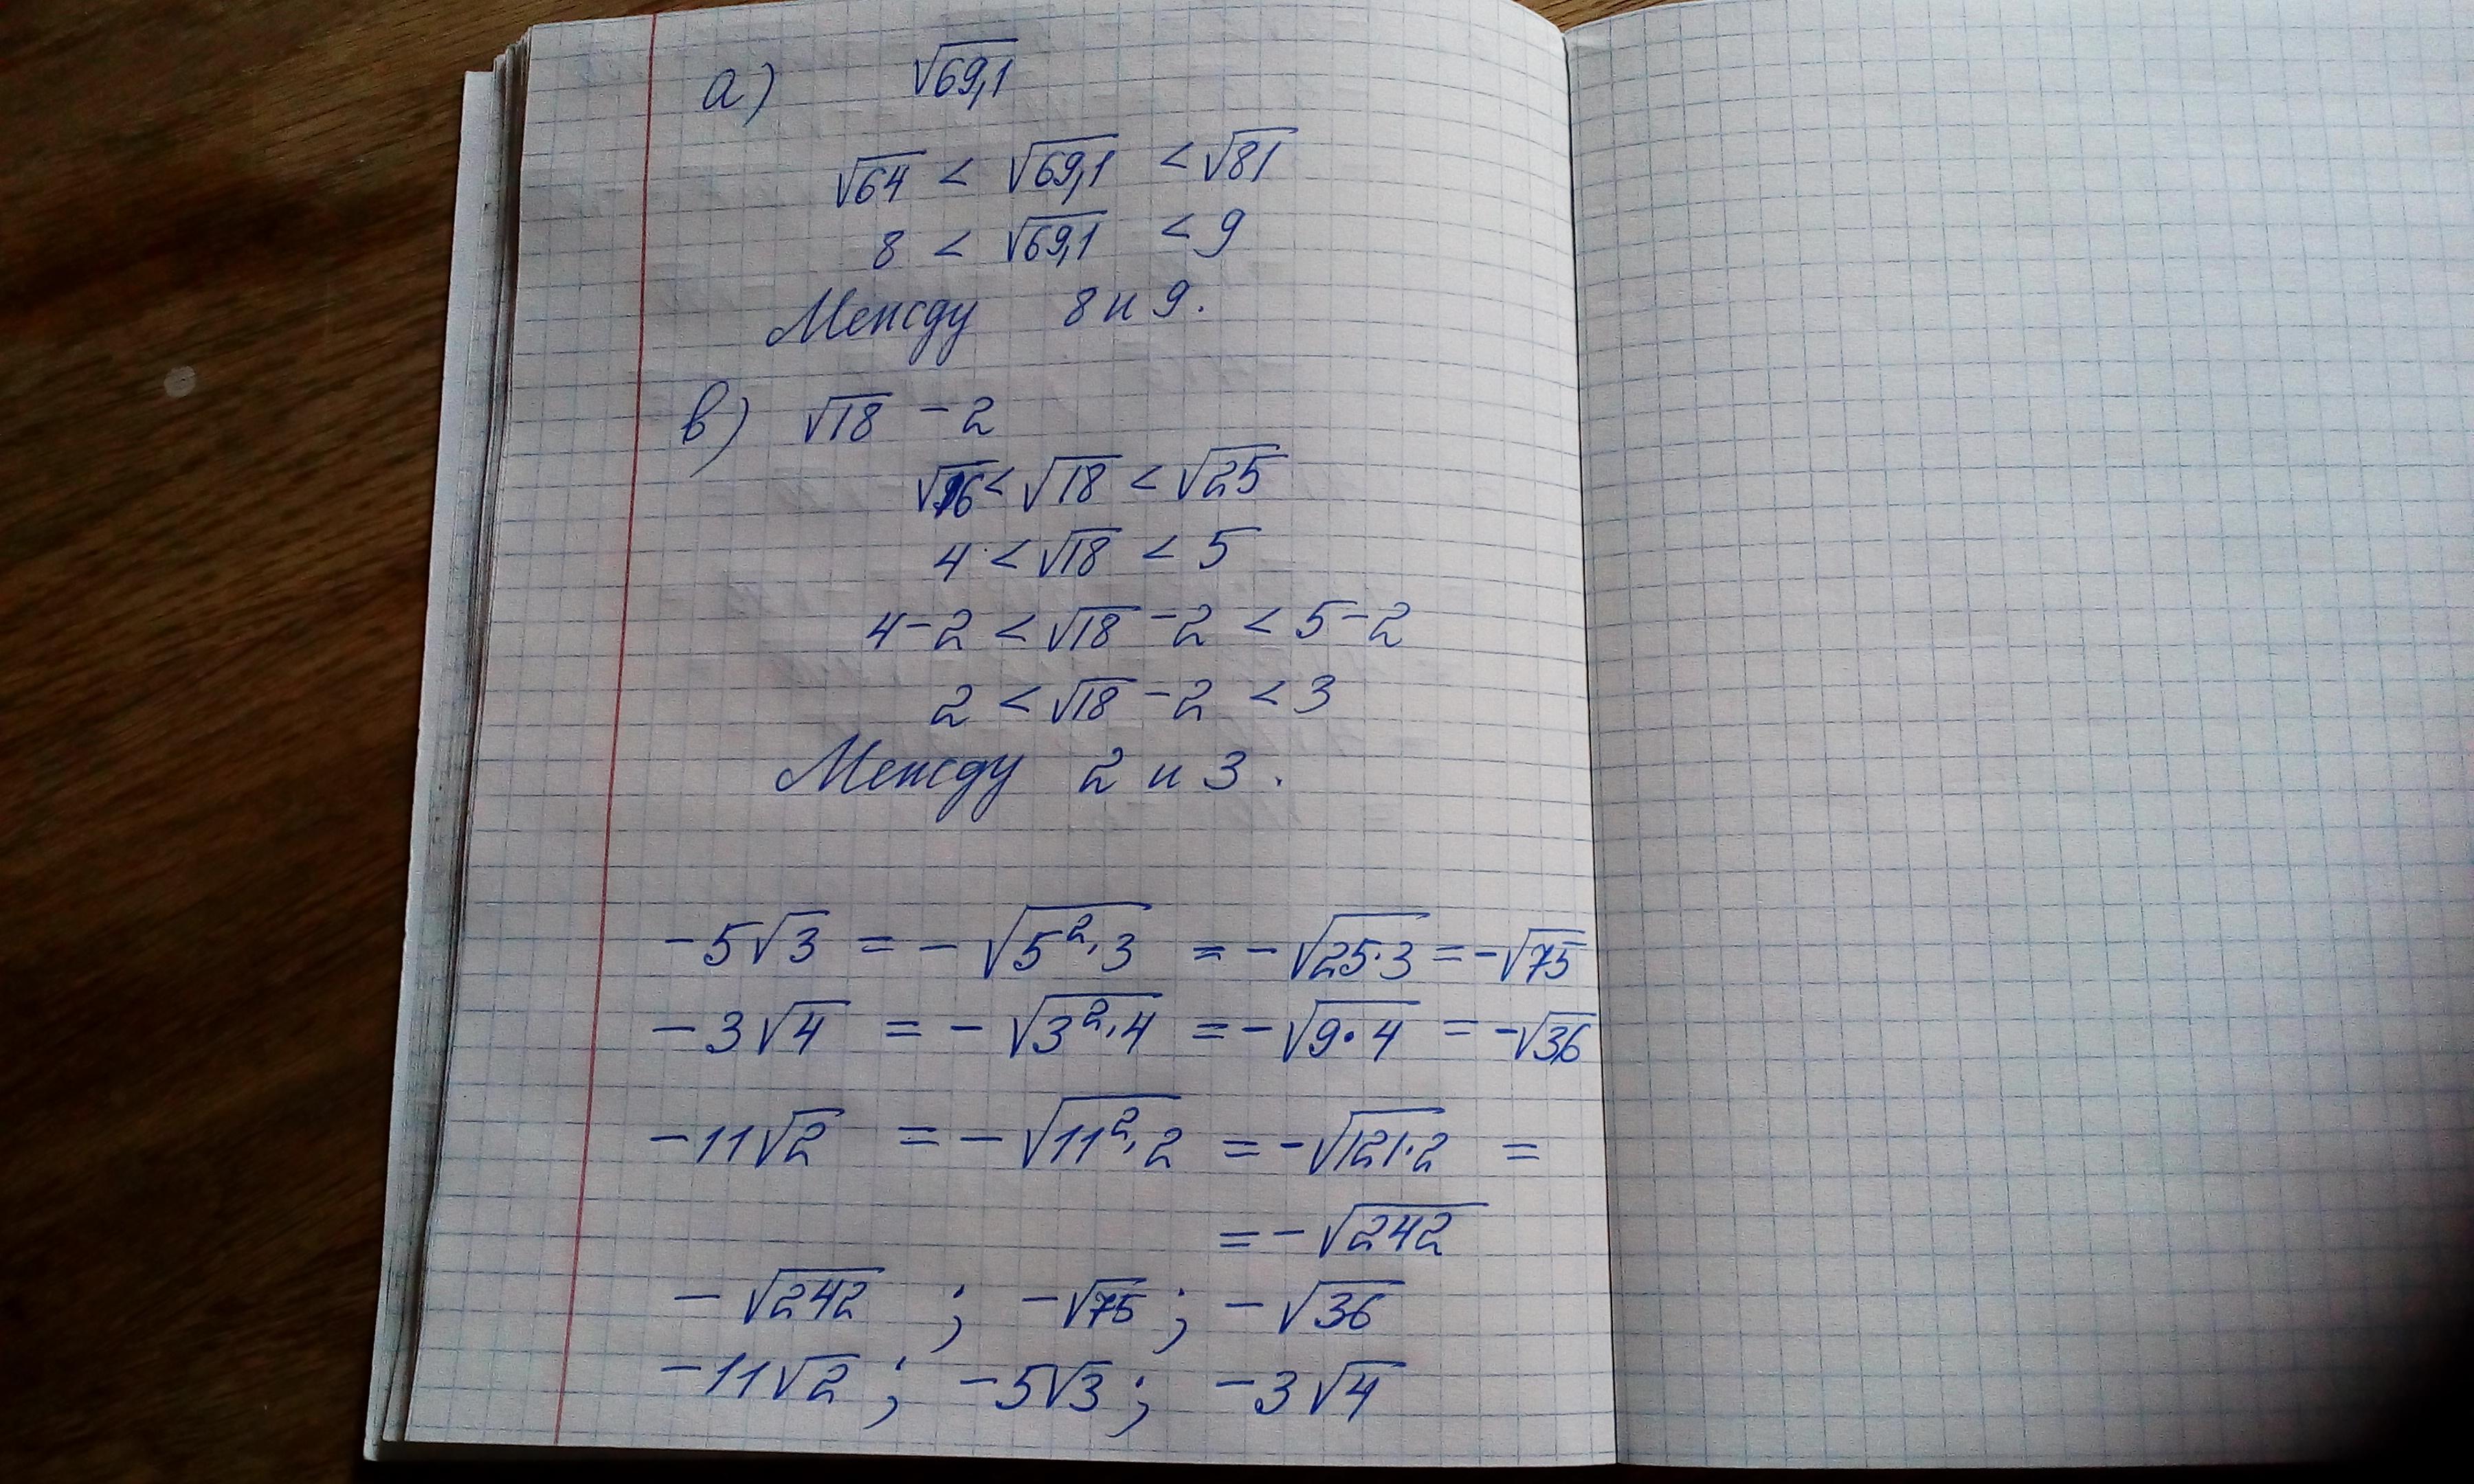 а) √69,1
√64 < √69,1 < √81
8 < √69,1 < 9
Между 8 и 9.
в) √18 - 2
√16 < √18 < √25
4 < √18 < 5
4-2 < √18 - 2 < 5-2
2 < √18 - 2 < 3
Между 2 и 3.
-5√3 = -√5²·3 = -√25·3 = -√75
-3√4 = -√3²·4 = -√9·4 = -√36
-11√2 = -√11²·2 = -√121·2 =
= -√242
-√242 ; -√75 ; -√36
-11√2 ; -5√3 ; -3√4